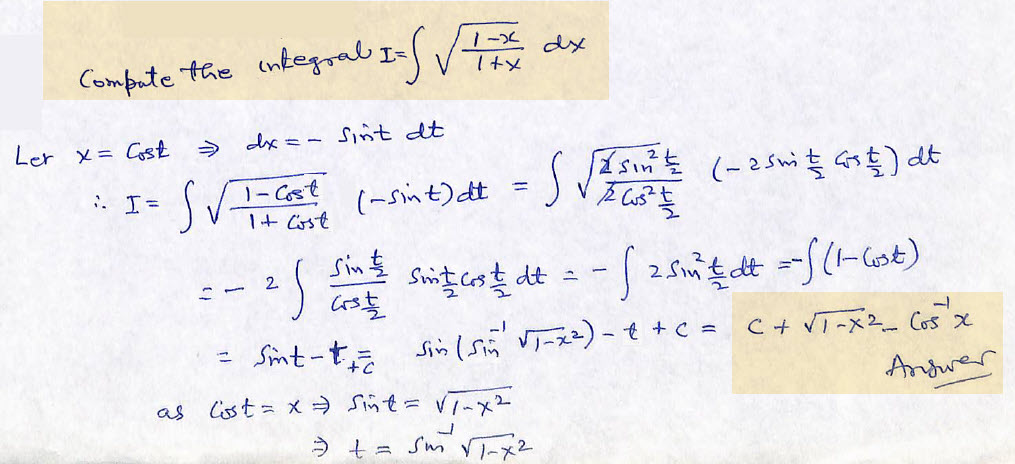 Compute the integral I = ∫ √((1-x)/(1+x)) dx
Let x = Cost ⇒ dx = - Sint dt
∴ I = ∫ √((1-Cost)/(1+Cost)) (-Sint) dt = ∫ √((2 Sin² t/2)/(2 Cos² t/2)) (-2 Sin t/2 Cos t/2) dt
= - 2 ∫ (Sin t/2)/(Cos t/2) Sin t/2 Cos t/2 dt = - ∫ 2 Sin² t/2 dt = - ∫ (1-Cost)
= Sint - t + c = Sin (Sin⁻¹ √(1-x²)) - t + c = c + √(1-x²) - Cos⁻¹ x
Answer
as Cost = x ⇒ Sint = √(1-x²)
⇒ t = Sin⁻¹ √(1-x²)